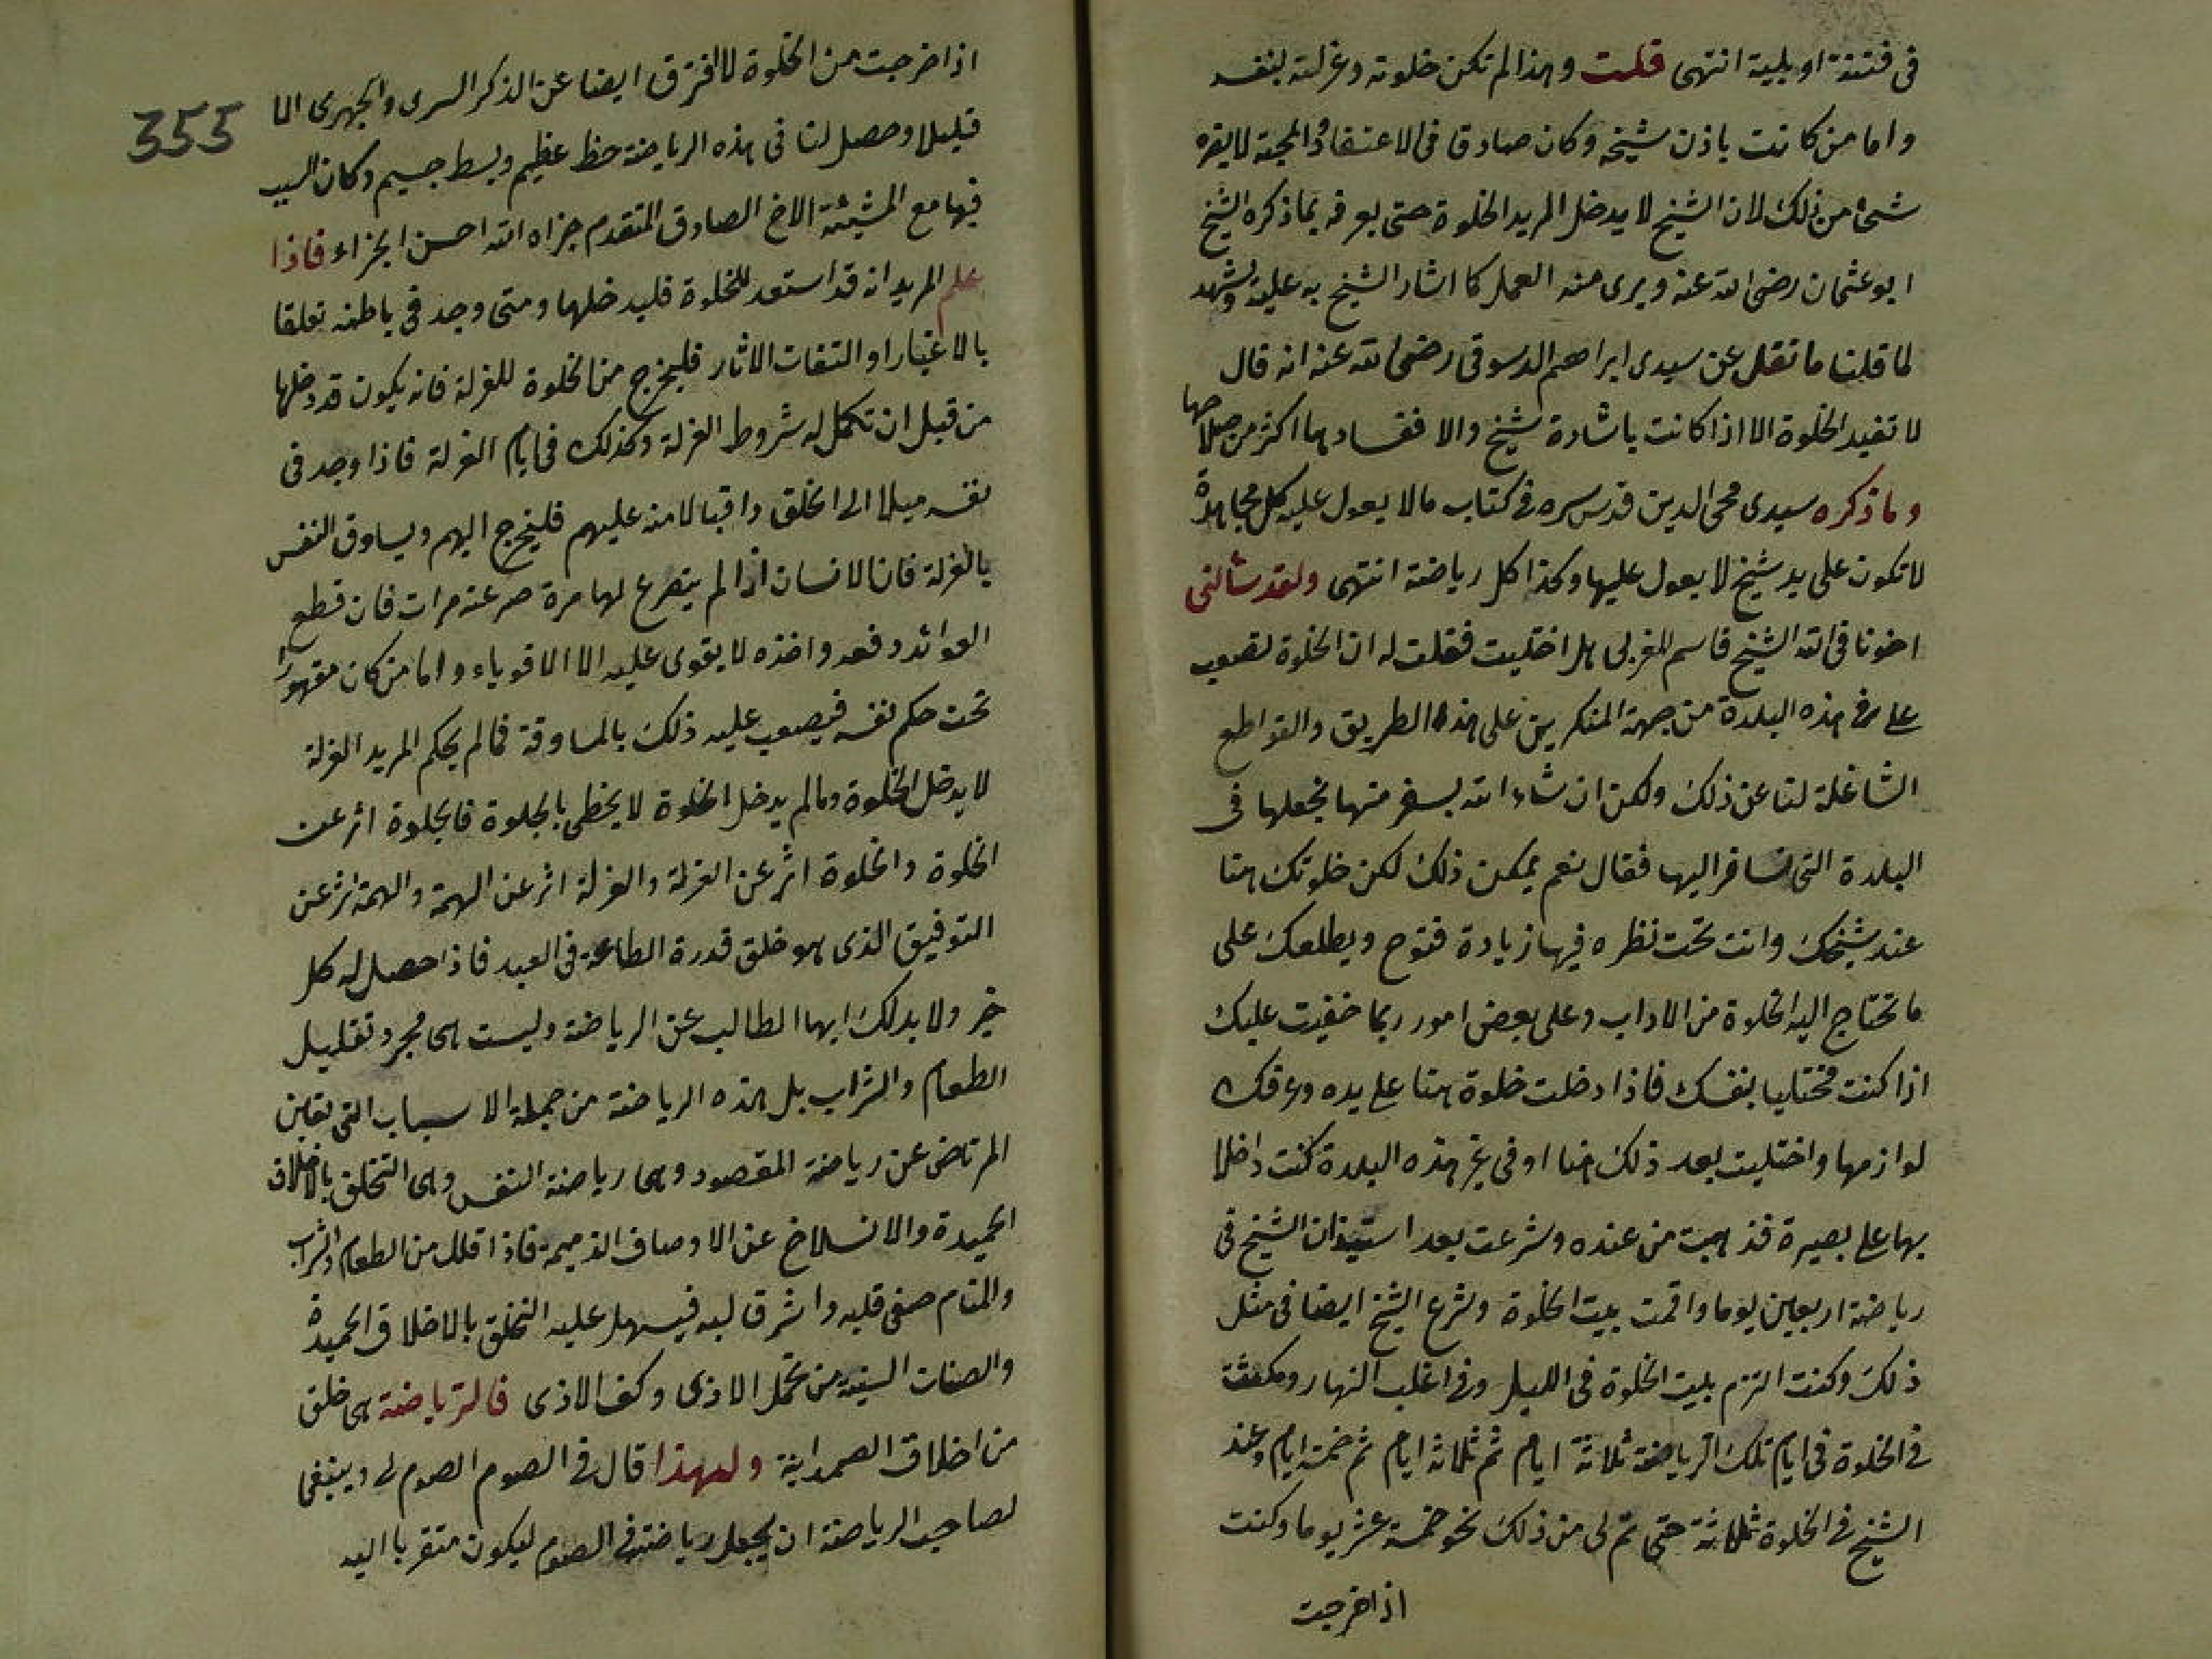 فى فتنة او بلية انتهى قلت وهذا لم تكن خلوته وعزلته بنفسه
واما من كانت باذن شيخه وكان صادقا فى الاعتقاد والمحبة لا يضره
شئ من ذلك لان الشيخ لا يدخل المريد الخلوة حتى يعرفه بما ذكره الشيخ
ابو عثمان رضى الله عنه ويرى منه العمل كما اشار الشيخ به عليه ويشهد
لما قلنا ما نقل عن سيدى ابراهيم الدسوقى رضى الله عنه انه قال
لا تفيد الخلوة الا اذا كانت باشارة شيخ والا ففسادها اكثر من صلاحها
وما ذكره سيدى محى الدين قدس سره فى كتاب مالا يعول عليه كل مجاهدة
لا تكون على يد شيخ لا يعول عليها وكذا كل رياضة انتهى ولقد سالنى
اخونا فى الله الشيخ قاسم المغربى هل اختليت فقلت له ان الخلوة تصعب
على فى هذه البلدة من جهة المنكرين على هذا الطريق والقواطع
الشاغلة لنا عن ذلك ولكن ان شاء الله بسفر منها نجعلها فى
البلدة التى نسافر اليها فقال نعم يمكن ذلك لكن خلوتك هنا
عند شيخك وانت تحت نظره فيها زيادة فتوح ويطلعك على
ما تحتاج اليه الخلوة من الاداب وعلى بعض امور ربما خفيت عليك
اذا كنت مختليا بنفسك فاذا دخلت خلوة هنا على يده وعرفك
لوازمها واختليت بعد ذلك هنا او فى غير هذه البلدة كنت داخلا
بها على بصيرة فذهبت من عنده وشرعت بعد استيذان الشيخ فى
رياضة اربعين يوما واقمت ببيت الخلوة وشرع الشيخ ايضا فى مثل
ذلك وكنت التزم بيت الخلوة فى الليل وفى اغلب النهار ومكثت
فى الخلوة فى ايام تلك الرياضة ثلاثة ايام ثم ثلاثة ايام ثم خمسة ايام وعند
الشيخ فى الخلوة ثلاثة حتى تم لى من ذلك نحو خمسة عشر يوما وكنت
اذا خرجت
355
اذا خرجت من الخلوة لا افترق ايضا عن الذكر السرى والجهرى الا
قليلا وحصل لنا فى هذه الرياضة حظ عظيم وبسط جسيم وكان السبب
فيها مع المشيئة الاخ الصادق المتقدم جزاه الله احسن الجزاء فاذا
علم المريد انه قد استعد للخلوة فليدخلها ومتى وجد فى باطنه تعلقا
بالاغيار او التفات الاثار فليخرج من الخلوة للعزلة فانه يكون قد دخلها
من قبل ان تكمل له شروط العزلة وكذلك فى ايام العزلة فاذا وجد فى
نفسه ميلا الى الخلق واقبالا منه عليهم فليخرج اليهم ويساوق النفس
بالعزلة فان الانسان اذا لم يتصرع لها مرة صرعته مرات فان قطع
العوائد دفعة واحدة لا يقوى عليه الا الاقوياء واما من كان مقهورا
تحت حكم نفسه فيصعب عليه ذلك بالمساوقة فما لم يحكم المريد العزلة
لا يدخل الخلوة وما لم يدخل الخلوة لا يحظى بالجلوة فالجلوة اثر عن
الخلوة والخلوة اثر عن العزلة والعزلة اثر عن الهمة والهمة اثر عن
التوفيق الذى هو خلق قدرة الطاعة فى العبد فاذا حصل له كل
خير ولا بد لك ايها الطالب عن الرياضة وليست هى مجرد تقليل
الطعام والشراب بل هذه الرياضة من جملة الاسباب التى تعين
المرتاض عن رياضة المقصود وهى رياضة النفس وهى التخلق بالاخلاق
الحميدة والانسلاخ عن الاوصاف الذميمة فاذا اقلل من الطعام والشراب
والمنام صفى قلبه واشرق لبه فيسهل عليه التخلق بالاخلاق الحميدة
والصفات السنية من تحمل الاذى وكف الاذى فالرياضة هى خلق
من اخلاق الصمدانية ولهذا قال فى الصوم الصوم لى وينبغى
لصاحب الرياضة ان يجعل رياضته فى الصوم ليكون متقربا اليه